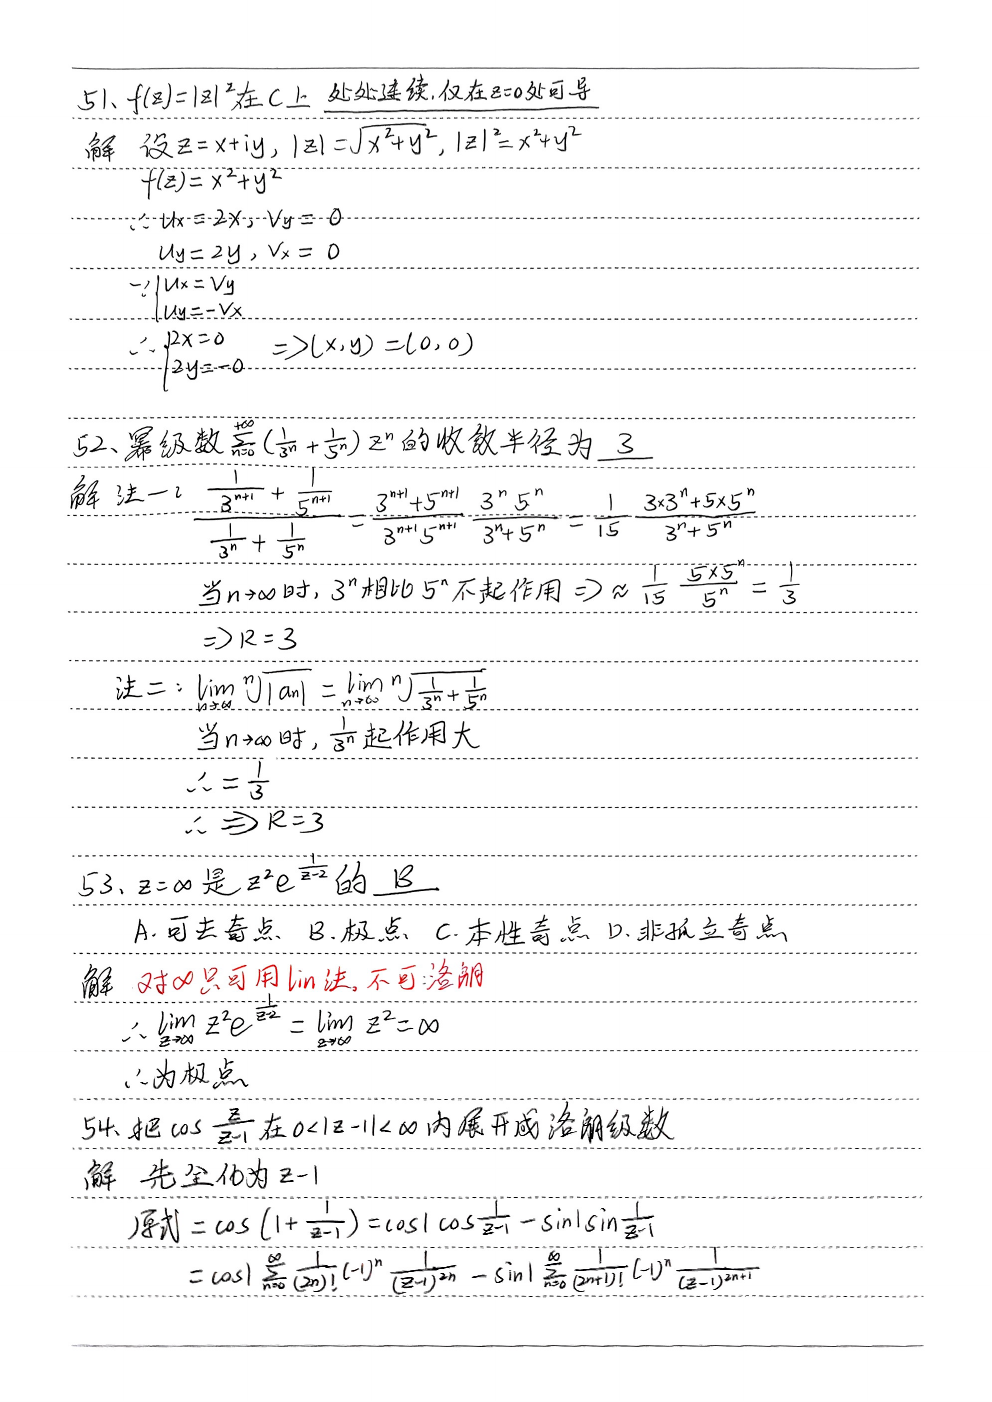 51、f(z)=|z|²在C上 处处连续,仅在z=0处可导
解 设z=x+iy, |z|=√(x²+y²), |z|²=x²+y²
f(z)=x²+y²
∴ Ux=2x, Vy=0
Uy=2y, Vx=0
∵{Ux=Vy
Uy=-Vx
∴{2x=0 =>(x,y)=(0,0)
2y=-0
52、幂级数 ∑_{n=0}^{+∞} (1/3ⁿ + 1/5ⁿ) zⁿ 的收敛半径为 3
解 法一: (1/3ⁿ⁺¹ + 1/5ⁿ⁺¹)/(1/3ⁿ + 1/5ⁿ) = (3ⁿ⁺¹+5ⁿ⁺¹)/(3ⁿ⁺¹5ⁿ⁺¹) (3ⁿ5ⁿ)/(3ⁿ+5ⁿ) = 1/15 (3×3ⁿ+5×5ⁿ)/(3ⁿ+5ⁿ)
当n→∞时, 3ⁿ相比5ⁿ不起作用 => ≈ 1/15 (5×5ⁿ)/5ⁿ = 1/3
=> R=3
法二: lim_{n→∞} ⁿ√|an| = lim_{n→∞} ⁿ√(1/3ⁿ+1/5ⁿ)
当n→∞时, 1/3ⁿ起作用大
∴ = 1/3
∴ => R=3
53、z=∞是 z²e^{1/(z-2)} 的 B
A.可去奇点 B.极点 C.本性奇点 D.非孤立奇点
解 对∞只可用lin法。不可洛朗
∴ lim_{z→∞} z²e^{1/(z-2)} = lim_{z→∞} z²=∞
∴为极点
54、把cos z/(z-1) 在0<|z-1|<∞内展开成洛朗级数
解 先全化为z-1
原式 = cos(1+1/(z-1)) = cos1 cos 1/(z-1) - sin1 sin 1/(z-1)
= cos1 ∑_{n=0}^{∞} 1/(2n)! (-1)ⁿ 1/(z-1)²ⁿ - sin1 ∑_{n=0}^{∞} 1/(2n+1)! (-1)ⁿ 1/(z-1)²ⁿ⁺¹